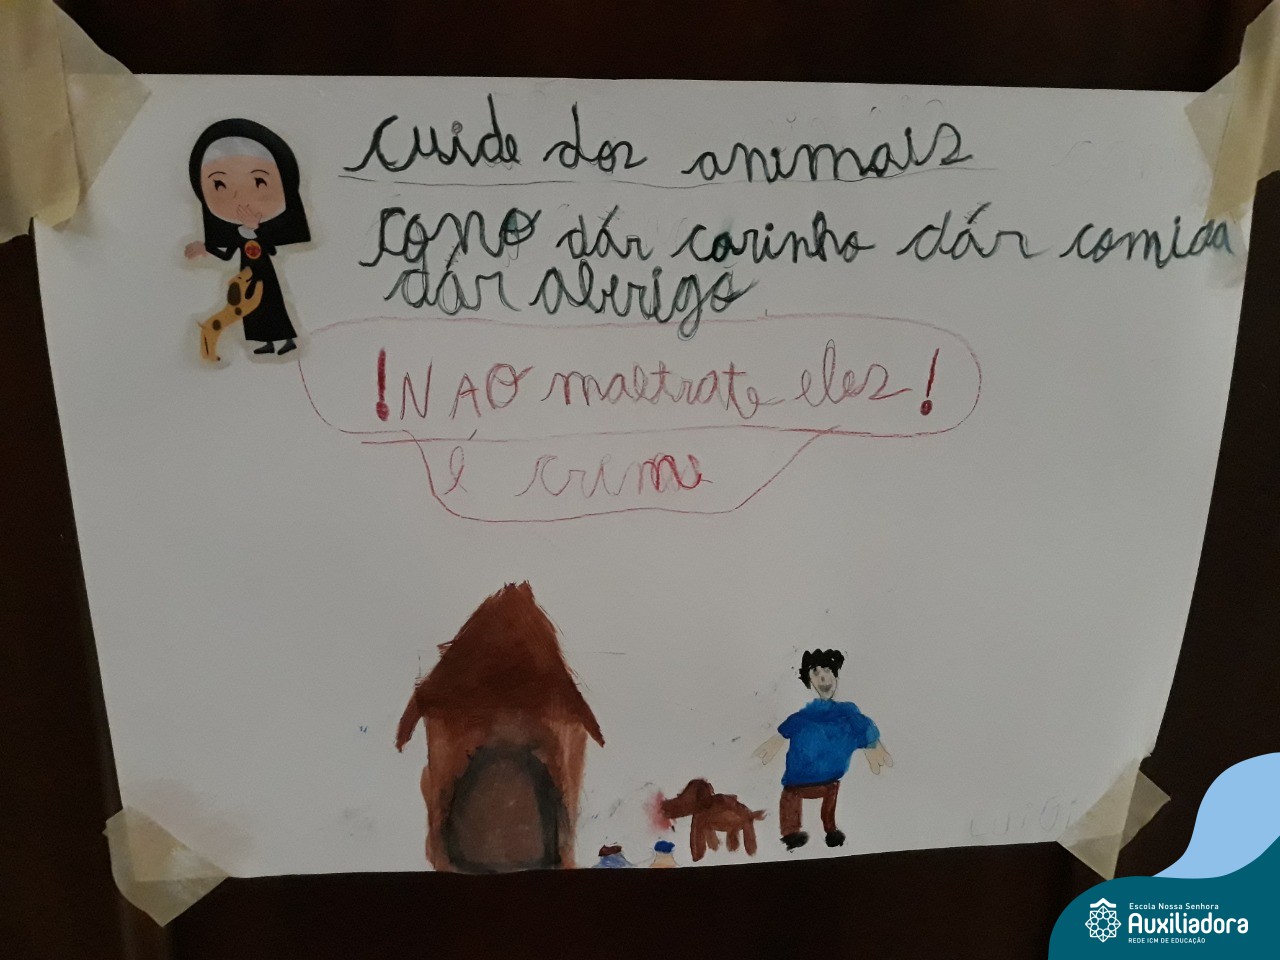 cuide dos animais
como dár carinho dár comida
dár abrigo
! NAO maltrate eles !
é crime
LUIGI
Escola Nossa Senhora
Auxiliadora
REDE ICM DE EDUCAÇÃO